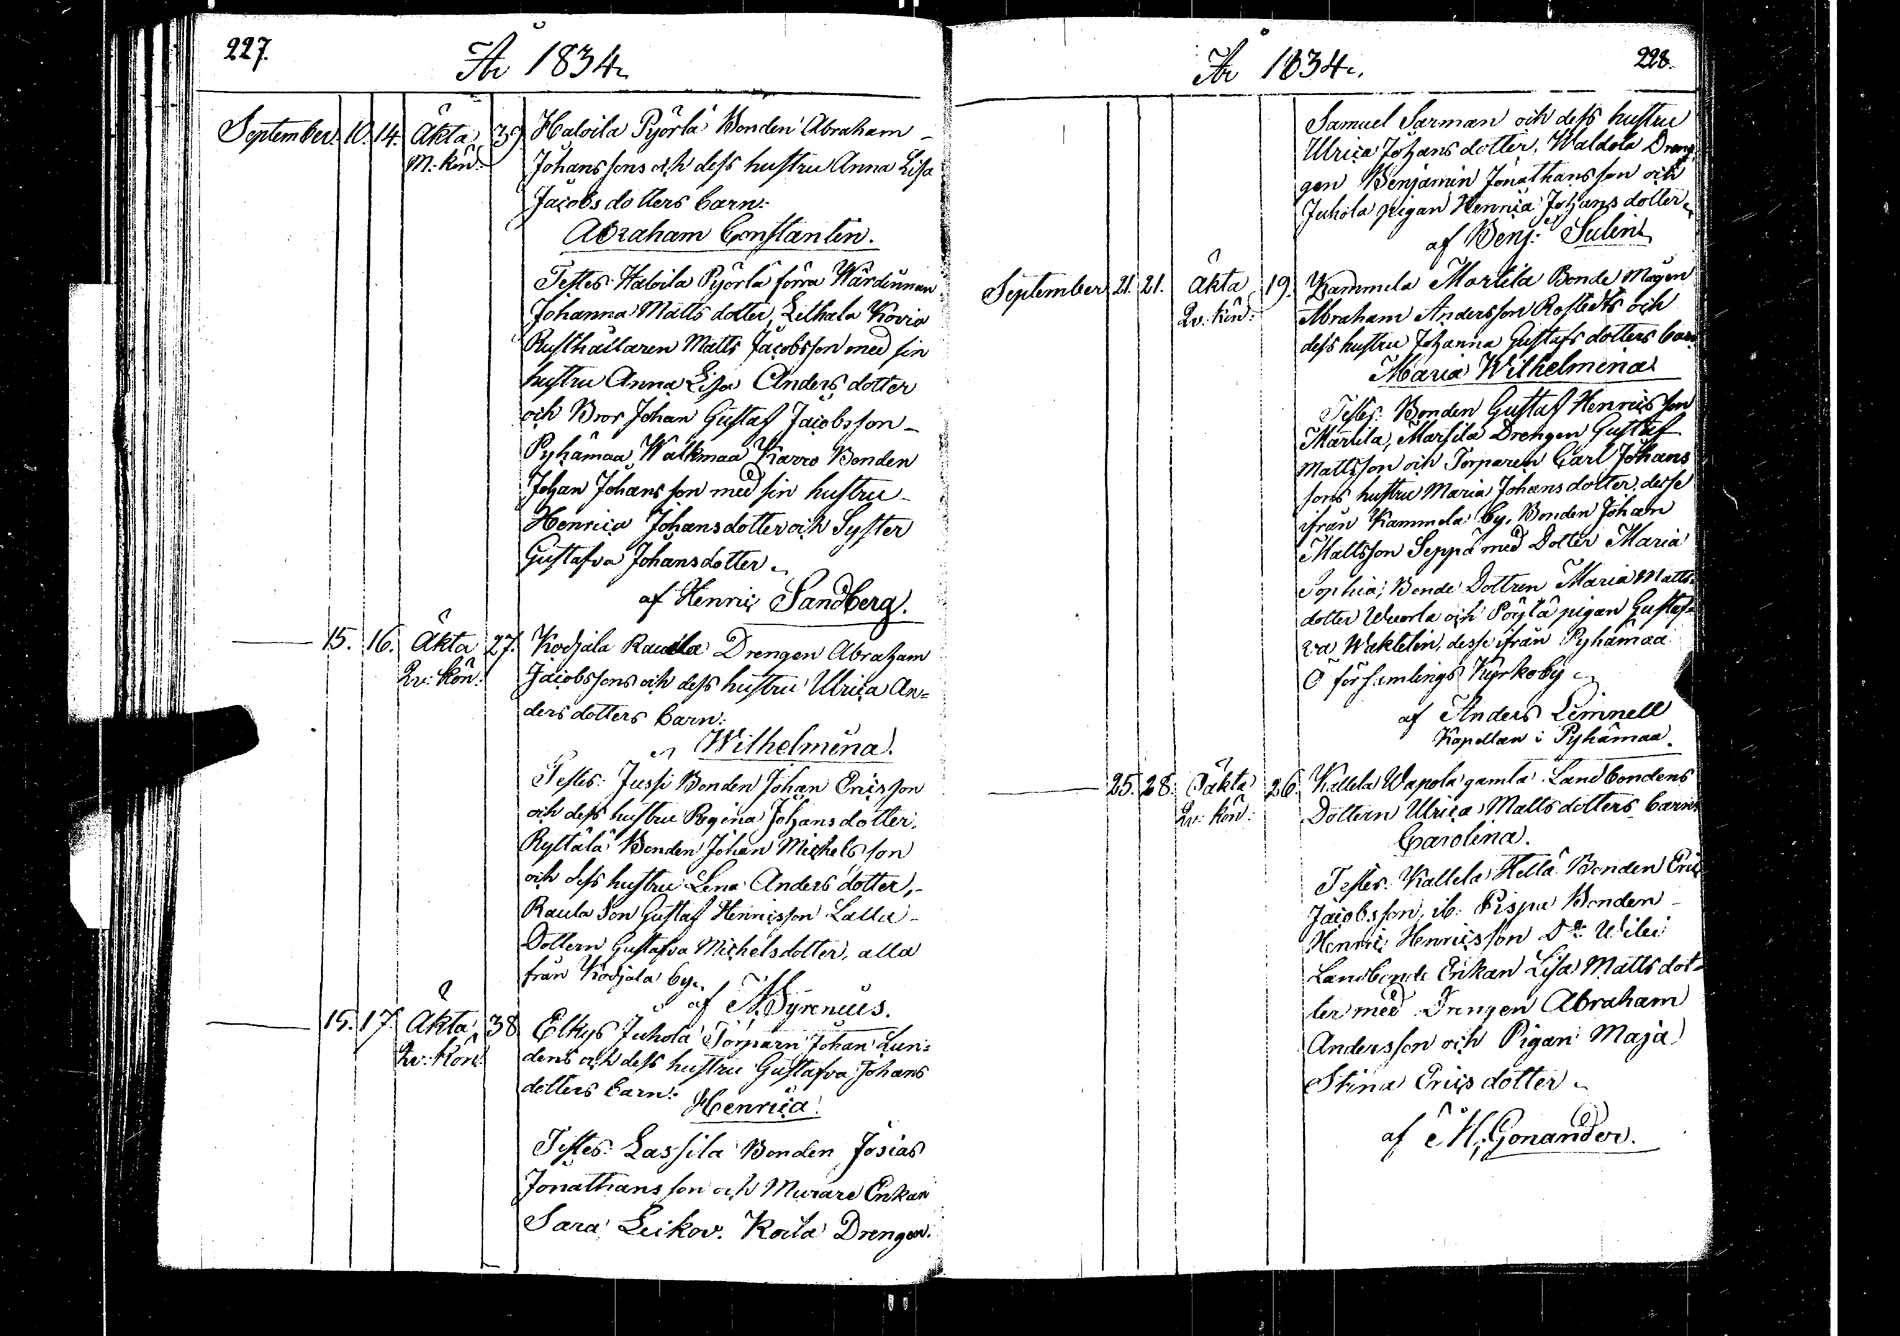 227.
År 1834.
September. 10. 14. Äkta 39 Haloila Pyörlä Bonden Abraham
M: kön: Johanssons och dess hustru Anna Lisa
Jacobsdotters barn:
Abraham Constantin.
Testes: Haloila Pyörlä förra Wärdinnan
Johanna Mattsdotter, Lethala Kovio
Rusthållaren Matts Jacobsson med sin
hustru Anna Lisa Andersdotter
och Bror Johan Gustaf Jacobsson
Pyhämaa Walkmaa Karro Bonden
Johan Johansson med sin hustru
Henrica Johansdotter och Syster
Gustafva Johansdotter
af Henric Sandberg.
15. 16. Äkta 27. Kodjala Raula Drengen Abraham
Qv: kön: Jacobssons och dess hustru Ulrica An=
dersdotters barn:
Wilhelmina.
Testes: Jussi Bonden Johan Ericsson
och dess hustru Regina Johansdotter,
Ryttälä Bonden Johan Michelsson
och dess hustru Lena Andersdotter,
Raula Son Gustaf Henricsson Lalla
Dottern Gustafva Michelsdotter, alla
från Kodjala by.
af N. Syrenius.
15. 17. Äkta 38 Elkys Juhola Torparn Johan Lun=
Qv: kön: dens och dess hustru Gustafva Johans
dotters barn:
Henrica.
Testes: Lassila Bonden Josias
Jonathansson och Murare Enkan
Sara Leikov. Koila Drengen
År 1834.
228.
Samuel Sarman och dess hustru
Ulrica Johansdotter, Waldola Dren
gen Benjamin Jonathansson och
Juhola pigan Henrica Johansdotter
af Benj: Sulin
September 21. 21. Äkta 19. Kammela Martila Bonde Mågen
Qv: kön: Abraham Andersson Rostedts och
dess hustru Johanna Gustafsdotters barn
Maria Wilhelmina
Testes: Bonden Gustaf Henricsson
Martila, Marsila Drengen Gustaf
Mattsson och Torparen Carl Johans
sons hustru Maria Johansdotter, desse
ifrån Kammela by, Bonden Johan
Mattsson Seppä med Dotter Maria
Sophia, Bonde Dottren Maria Matts=
dotter Wuorla och Pöytä pigan Gustaf=
va Waktelin, desse ifrån Pyhämaa
Ö församlings Kyrkoby
af Anders Limnell
Kapellan i Pyhämaa.
25. 28. Oäkta 26. Kallela Wapola gamla Landbondens
Qv: kön: Dottern Ulrica Mattsdotters barn
Carolina.
Testes: Kallela Hellä Bonden Eric
Jacobsson, ib: Pispa Bonden
Henric Henricsson Do: Wilei
Landbonde Enkan Lisa Mattsdot=
ter med Drengen Abraham
Andersson och Pigan Maja
Stina Ericsdotter
af H. Gonander.